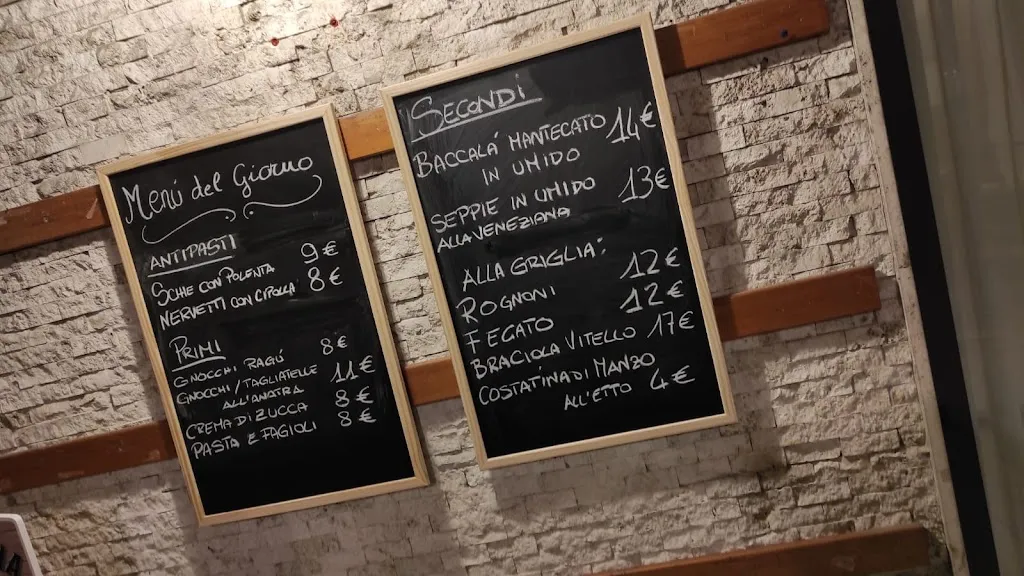 Menú del Giorno
ANTIPASTI
SCHE CON POLENTA 9€
NERVETTI CON CIPOLLA 8€
PRIMI
GNOCCHI RAGÚ 8€
GNOCCHI/TAGLIATELLE 11€
ALL'ANATRA
CREMA DI ZUCCA 8€
PASTA E FAGIOLI 8€
SECONDI
BACCALÁ MANTECATO 14€
IN UMIDO
SEPPIE IN UMIDO 13€
ALLA VENEZIANA
ALLA GRIGLIA:
ROGNONI 12€
FEGATO 12€
BRACIOLA VITELLO 17€
COSTATINA DI MANZO
ALL'ETTO 4€